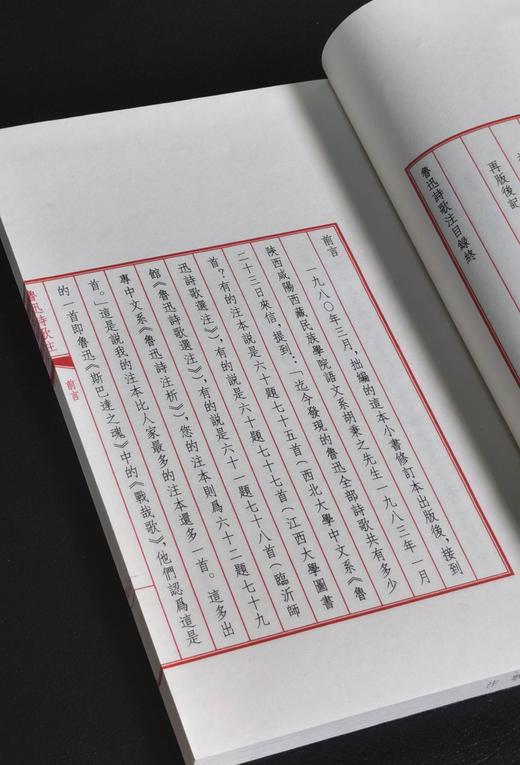 再版後記
魯迅詩歌注目録終
前言
一九八〇年三月，拙編的這本小書修訂本出版後，接到
陝西咸陽西藏民族學院語文系胡秉之先生一九八三年一月
二十三日來信，提到：「迄今發現的魯迅全部詩歌共有多少
首？有的注本説是六十題七十五首（西北大學中文系《魯
迅詩歌選注》），有的説是六十題七十七首（江西大學圖書
館《魯迅詩歌選注》），有的説是六十一題七十八首（臨沂師
專中文系《魯迅詩注析》），您的注本則爲六十二題七十九
首。」這是説我的注本比人家最多的注本還多一首。這多出
的一首即魯迅《斯巴達之魂》中的《戰哉歌》，他們認爲這是
魯迅詩歌注
前言